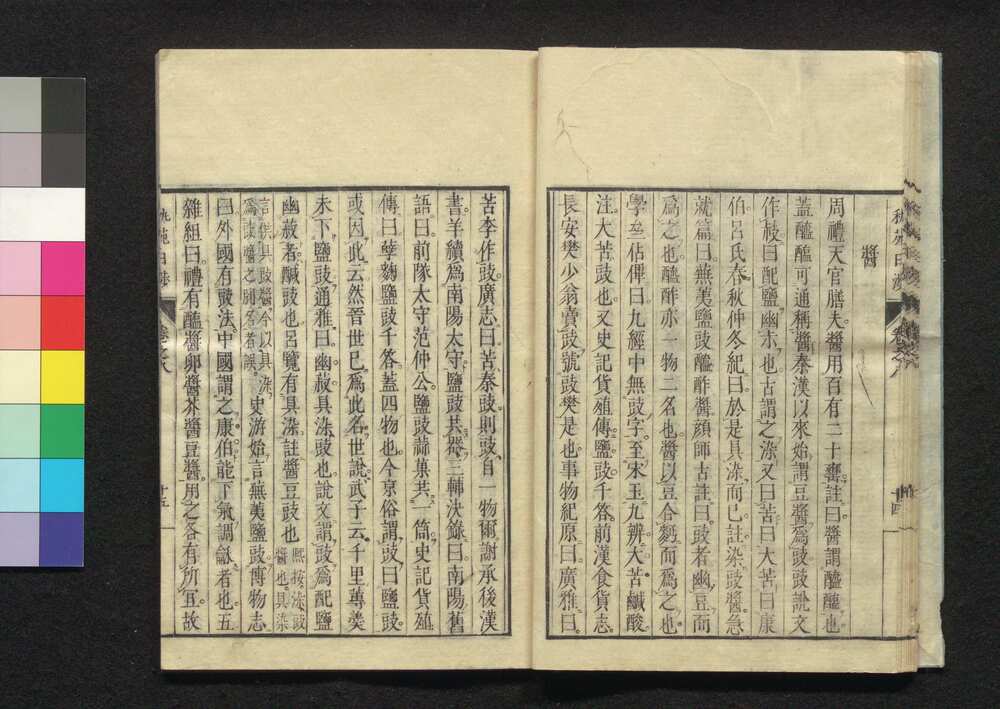 醬
周禮天官膳夫醬用百有二十罋註曰醬謂醯醢也
蓋醯醢可通稱醬秦漢以來始謂豆醬爲豉豉說文
作敊曰配鹽幽尗也古謂之𣻳又曰苦曰大苦曰康
伯呂氏春秋仲冬紀曰於是具𣻳而已註染豉醬急
就篇曰蕪荑鹽豉醯酢醬顏師古註曰豉者幽豆而
爲之也醯酢亦一物二名也醬以豆合麪而爲之也
學 佔俾曰九經中無豉字至宋玉九辨大苦鹹酸
注大苦豉也又史記貨殖傳鹽豉千答前漢食貨志
長安樊少翁賣豉號豉樊是也事物紀原曰廣雅曰
苦李作豉廣志曰苦𣗥豉則豉自一物爾謝承後漢
書羊續爲南陽太守鹽豉共器三輔決錄曰南陽舊
語曰前隊太守范仲公鹽豉蒜菓共一筩史記貨殖
傳曰糱麴鹽豉千答蓋四物也今京俗謂豉曰鹽豉
或因此云然晉世已爲此名世說武子云千里蓴羹
未下鹽豉通雅曰幽菽具𣻳豉也說文謂豉爲配鹽
幽菽者鹹豉也呂覽有具𣻳註醬豆豉也熙按𣻳豉醬也具𣻳
言俱具豉醬今以具𣻳爲豉醬之別名者誤史游始言蕪荑鹽豉博物志
曰外國有豉法中國謂之康伯能下氣調龢者也五
雜組曰禮有醢醬卵醬芥醬豆醬用之各有所宜故
卷之八
十五